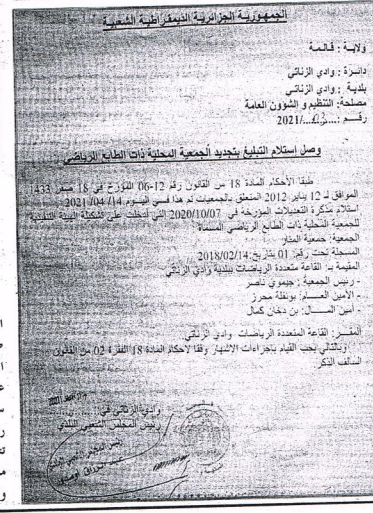 الجمهورية الجزائرية الديمقراطية الشعبية
ولاية : قالمة
دائرة : وادي الزناتي
بلدية : وادي الزناتي
مصلحة التنظيم و الشؤون العامة
رقم :..../2021
وصل إستلام التبليغ بتجديد الجمعية المحلية ذات الطابع الرياضي
طبقا لأحكام المادة 18 من القانون رقم 12-06 المؤرخ في 18 صفر 1433
الموافق لـ 12 يناير 2012 المتعلق بالجمعيات تم هذا اليوم 14/ 04/ 2021
إستلام مذكرة التعديلات المؤرخة في 2020/10/07 التي أدخلت على تشكيلة الهيئة التنفيذية
للجمعية المحلية ذات الطابع الرياضي المسماة
الجمعية: جمعية المنار
المسجلة تحت رقم: 01 بتاريخ: 2018/02/14
المقيمة بـ: القاعة متعددة الرياضات ببلدية وادي الزناتي
- رئيس الجمعية : جيموي ناصر
- الأمين العام: بونغلة محرز
- أمين المال: بن دخان كمال
المقر: القاعة المتعددة الرياضات وادي الزناتي
وبالتالي يجب القيام بإجراءات الإشهار وفقا لأحكام المادة 18 الفقرة 02 من القانون
السالف الذكر
وادي الزناتي في
رئيس المجلس الشعبي البلدي